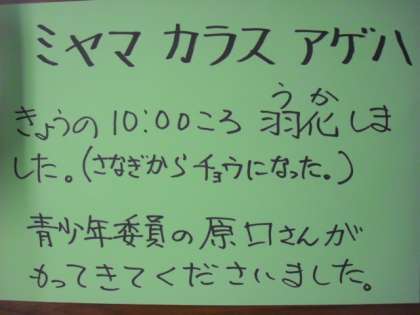 ミヤマ カラス アゲハ
きょうの 10:00ころ 羽化しま
うか
した。(さなぎから チョウになった。)
青少年委員の 原口さんが
もってきてくださいました。